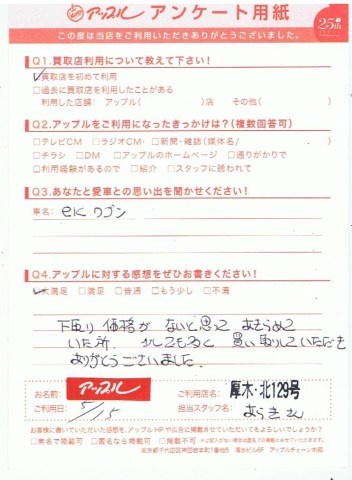 アップル アンケート用紙
25th
この度は当店をご利用いただきありがとうございました。
Q1.買取店利用について教えて下さい!
☑買取店を初めて利用
□過去に買取店を利用したことがある
利用した店舗：アップル( )店 その他( )
Q2.アップルをご利用になったきっかけは?(複数回答可)
□テレビCM □ラジオCM・□新聞・雑誌(媒体名/ )
□チラシ □DM □アップルのホームページ □通りがかりで
□利用経験があるので □紹介 □スタッフに誘われて
Q3.あなたと愛車との思い出を聞かせください!
車名: ekワゴン
Q4.アップルに対する感想をぜひお書きください!
☑大満足 □満足 □普通 □もう少し □不満
下取り価格がないと思ってあきらめて
いた所、少しでも高く買い取りしていただき
ありがとうございました。
お名前: アップル ご利用店名: 厚木・北129号
ご利用日: 5/15 担当スタッフ名: あらきさん
お客様に書いていただいた感想を、アップルHPや広告に掲載させていただいてもよろしいでしょうか?
□実名で掲載可 □匿名なら掲載可 □掲載不可
東京都千代田区神田岩本町1番地5 清水ビル6F アップルチェーン本部